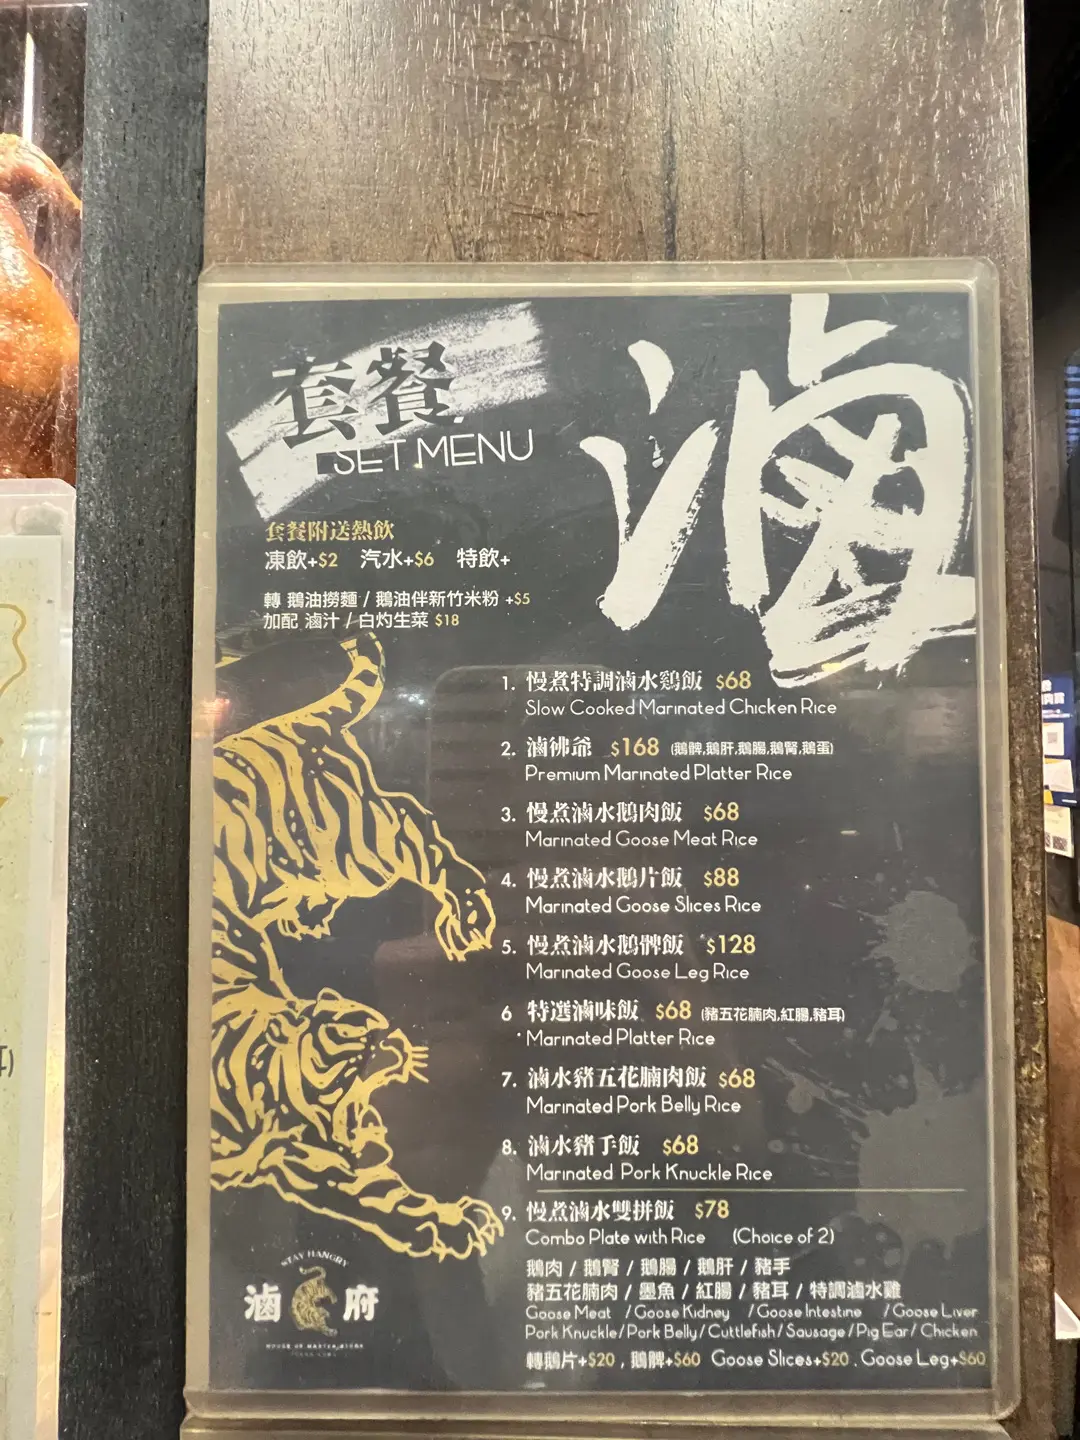 套餐
SET MENU
滷
套餐附送熱飲
凍飲+$2 汽水+$6 特飲+
轉 鵝油撈麵 / 鵝油伴新竹米粉 +$5
加配 滷汁 / 白灼生菜 $18
1. 慢煮特調滷水鷄飯 $68
Slow Cooked Marinated Chicken Rice
2. 滷彿爺 $168 (鵝髀,鵝肝,鵝腸,鵝腎,鵝蛋)
Premium Marinated Platter Rice
3. 慢煮滷水鵝肉飯 $68
Marinated Goose Meat Rice
4. 慢煮滷水鵝片飯 $88
Marinated Goose Slices Rice
5. 慢煮滷水鵝髀飯 $128
Marinated Goose Leg Rice
6 特選滷味飯 $68 (豬五花腩肉,紅腸,豬耳)
Marinated Platter Rice
7. 滷水豬五花腩肉飯 $68
Marinated Pork Belly Rice
8. 滷水豬手飯 $68
Marinated Pork Knuckle Rice
9. 慢煮滷水雙拼飯 $78
Combo Plate with Rice (Choice of 2)
鵝肉 / 鵝腎 / 鵝腸 / 鵝肝 / 豬手
豬五花腩肉 / 墨魚 / 紅腸 / 豬耳 / 特調滷水雞
Goose Meat / Goose Kidney / Goose Intestine / Goose Liver
Pork Knuckle / Pork Belly / Cuttlefish / Sausage / Pig Ear / Chicken
轉鵝片+$20 , 鵝髀+$60 Goose Slices+$20 , Goose Leg+$60
STAY HANGRY
滷府